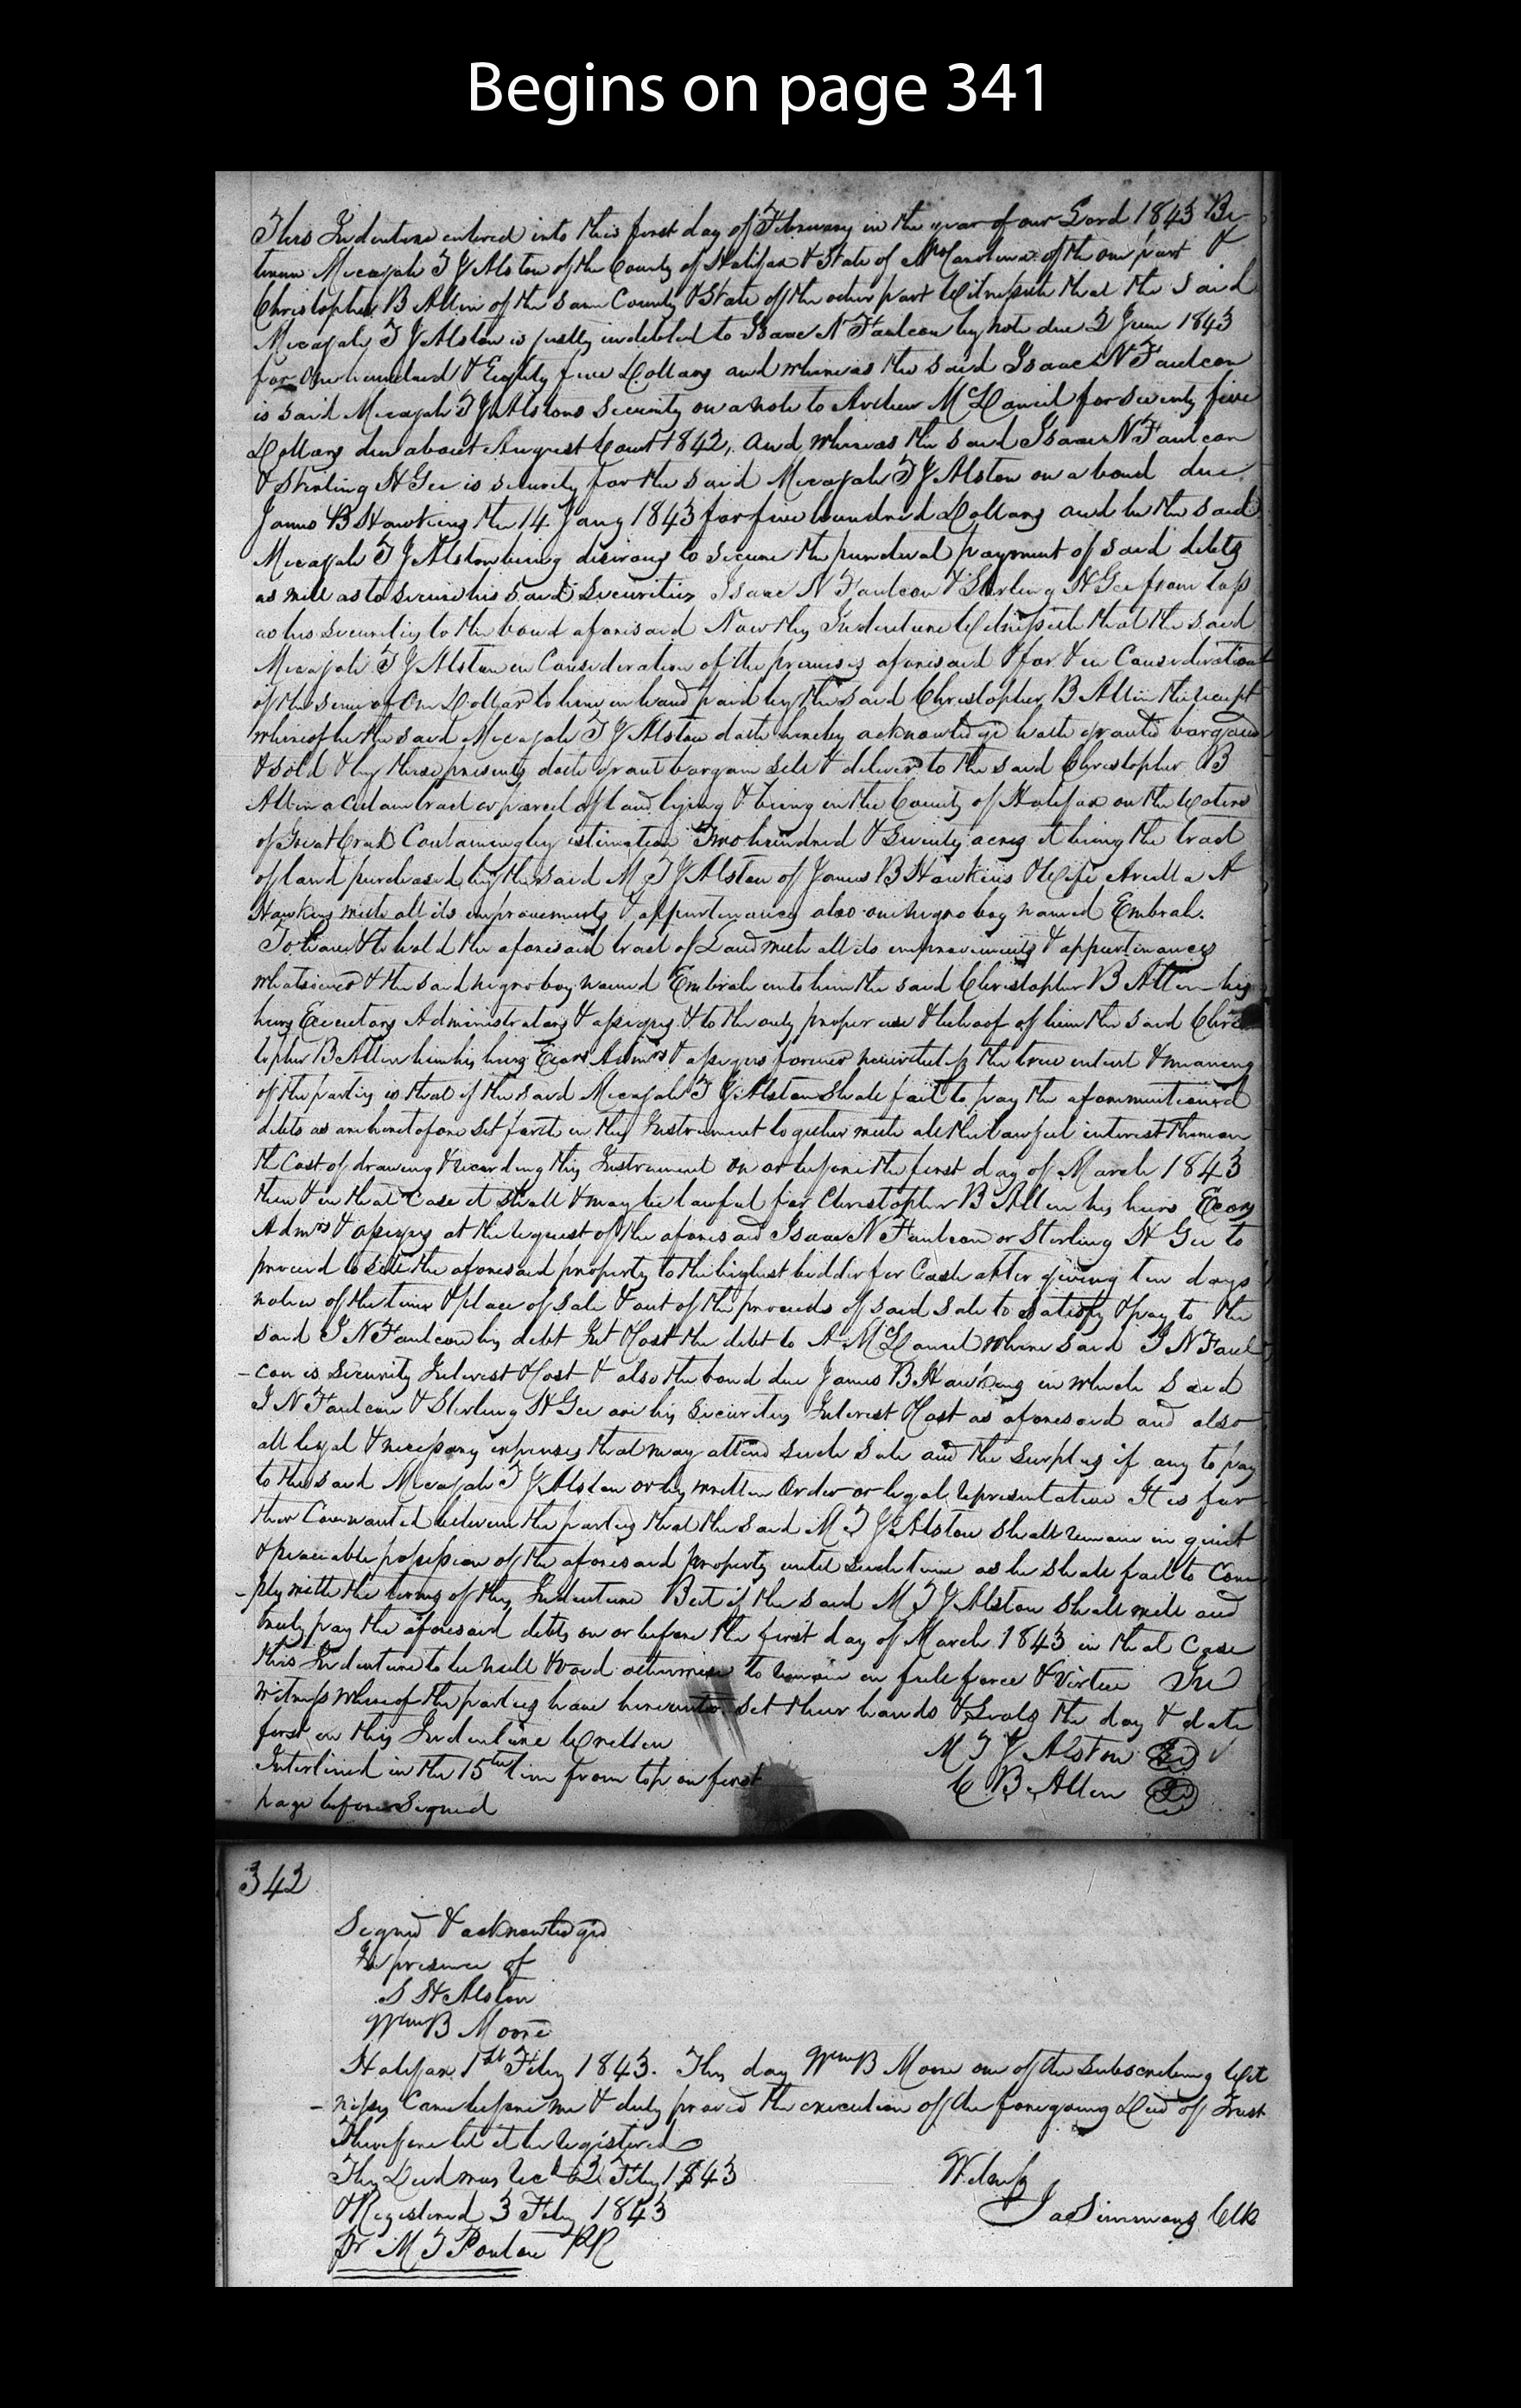 Begins on page 341
This Indenture entered into this first day of February in the year of our Lord 1843 Be-
tween Micajah T J Alston of the County of Halifax & State of No Carolina of the one part &
Christopher B Allen of the same County & State of the other part Witnesseth that the said
Micajah T J Alston is justly indebted to Isaac N Faulcon by note due 2 June 1843
for One hundred & Eighty five Dollars and whereas the said Isaac N Faulcon
is said Micajah T J Alstons security on a note to Andrew McDaniel for seventy five
Dollars due about August Court 1842, and whereas the said Isaac N Faulcon
& Sterling H Gee is security for the said Micajah T J Alston on a bond due
James B Hawkins the 14 Jany 1843 for five hundred Dollars and he the said
Micajah T J Alston being desirous to secure the punctual payment of said debts
as well as to secure his said Securities Isaac N Faulcon & Sterling H Gee from loss
as his securities to the bond aforesaid Now this Indenture Witnesseth that the said
Micajah T J Alston in Consideration of the premises aforesaid & for & in Consideration
of the sum of One Dollar to him in hand paid by the said Christopher B Allen the receipt
whereof he the said Micajah T J Alston doth hereby acknowledge hath granted bargained
& sold & by these presents doth grant bargain sell & deliver to the said Christopher B
Allen a certain tract or parcel of land lying & being in the County of Halifax on the Waters
of Great Creek Containing by estimation Two hundred & Seventy acres it being the tract
of land purchased by the said M T J Alston of James B Hawkins & Wife Arella A
Hawkins with all its improvements & appurtenances also one negro boy named Embrah.
To have & to hold the aforesaid tract of Land with all its improvements & appurtinances
whatsoever & the said negro boy named Embrah unto him the said Christopher B Allen his
heirs Executors Administrators & assigns & to the only proper use & behoof of him the said Chris
topher B Allen him his heirs Exors Admrs & assigns forever nevertheless the true intent & meaning
of the parties is that if the said Micajah T J Alston shall fail to pay the aforementioned
debts as are heretofore set forth in this Instrument together with all the lawful interest thereon
the Cost of drawing & recording this Instrument on or before the first day of March 1843
then & in that Case it shall & may be lawful for Christopher B Allen his heirs Exors
Admrs & assigns at the request of the aforesaid Isaac N Faulcon or Sterling H Gee to
proceed to sell the aforesaid property to the highest bidder for Cash after giving ten days
notice of the time & place of sale & out of the proceeds of said sale to satisfy & pay to the
said I N Faulcon his debt Int & Cost the debt to A McDaniel where said I N Faul
-con is Security Interest & Cost & also the bond due James B Hawkins in which said
I N Faulcon & Sterling H Gee are his securities Interest & Cost as aforesaid and also
all legal & necessary expenses that may attend such sale and the surplus if any to pay
to the said Micajah T J Alston or his written Order or legal representative It is fur
ther Covenanted between the parties that the said M T J Alston shall remain in quiet
& peaceable possession of the aforesaid property until such time as he shall fail to Com
-ply with the terms of this Indenture But if the said M T J Alston shall well and
truly pay the aforesaid debts on or before the first day of March 1843 in that Case
this Indenture to be null & void otherwise to remain in full force & virtue In
witness whereof the parties have hereunto set their hands & Seals the day & date
first in this Indenture Written
M T J Alston
Interlined in the 15th line from top on first
C B Allen
page before Signed
342
Signed & acknowledged
In presence of
S H Alston
Wm B Moore
Halifax 1st Feby 1843. This day Wm B Moore one of the Subscribing Wit
-nesses Came before me & duly proved the execution of the foregoing Deed of Trust
Therefore let it be registered
This Deed was Recd 2 Feby 1843
Witness
& Registered 3 Feby 1843
Ja Simmons Clk
Pr M T Ponton PR